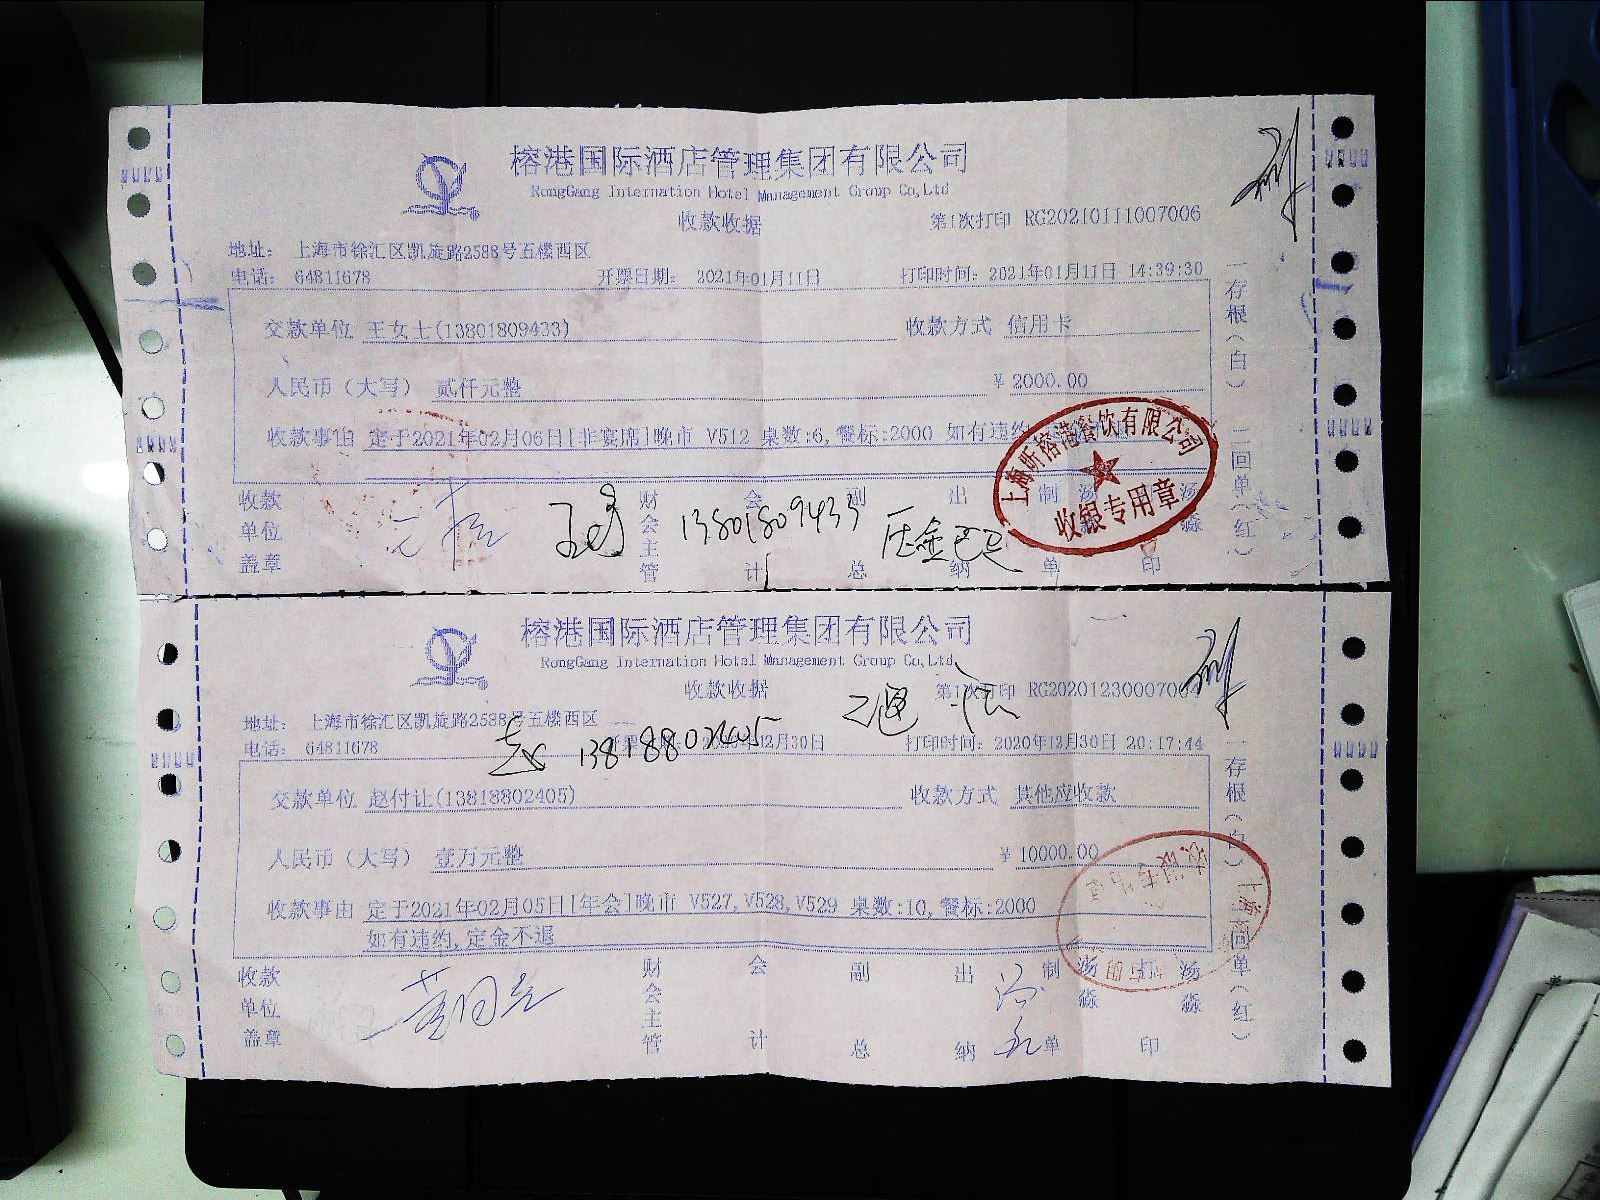 榕港国际酒店管理集团有限公司
RongGang Internation Hotel Management Group Co,Ltd
收款收据
第1次打印 RG20210111007006
地址: 上海市徐汇区凯旋路2588号五楼西区
电话: 64811678 开票日期: 2021年01月11日 打印时间: 2021年01月11日 14:39:30
交款单位 王女士(13801809433) 收款方式 信用卡
人民币(大写) 贰仟元整 ¥ 2000.00
收款事由 定于2021年02月06日[非宴席]晚市 V512 桌数:6,餐标:2000 如有违约
一存根(白) 二回单(红)
上海昕榕港餐饮有限公司
收银专用章
收款单位盖章
财会主管
会计
副总
出纳
制单
汤淼
印
汤淼
13801809433
榕港国际酒店管理集团有限公司
RongGang Internation Hotel Management Group Co,Ltd
收款收据
第1次打印 RG20201230007
地址: 上海市徐汇区凯旋路2588号五楼西区
13818802405
电话: 64811678 12月30日 打印时间: 2020年12月30日 20:17:44
交款单位 赵付让(13818802405) 收款方式 其他应收款
人民币(大写) 壹万元整 ¥ 10000.00
收款事由 定于2021年02月05日[年会]晚市 V527,V528,V529 桌数:10,餐标:2000
如有违约,定金不退
一存根(白) 二回单(红)
收款单位盖章
财会主管
会计
副总
出纳
制单
汤淼
印
汤淼